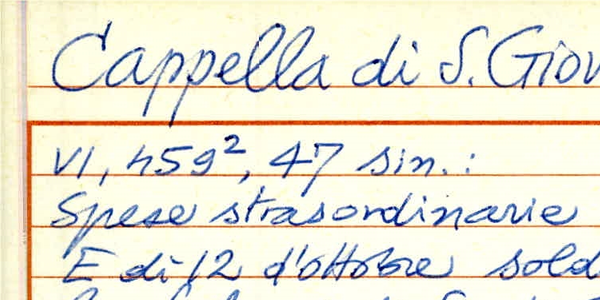 Cappella di S. Giov
VI, 459², 47 sin.:
Spese strasordinarie
E dì 12 d'ottobre sold